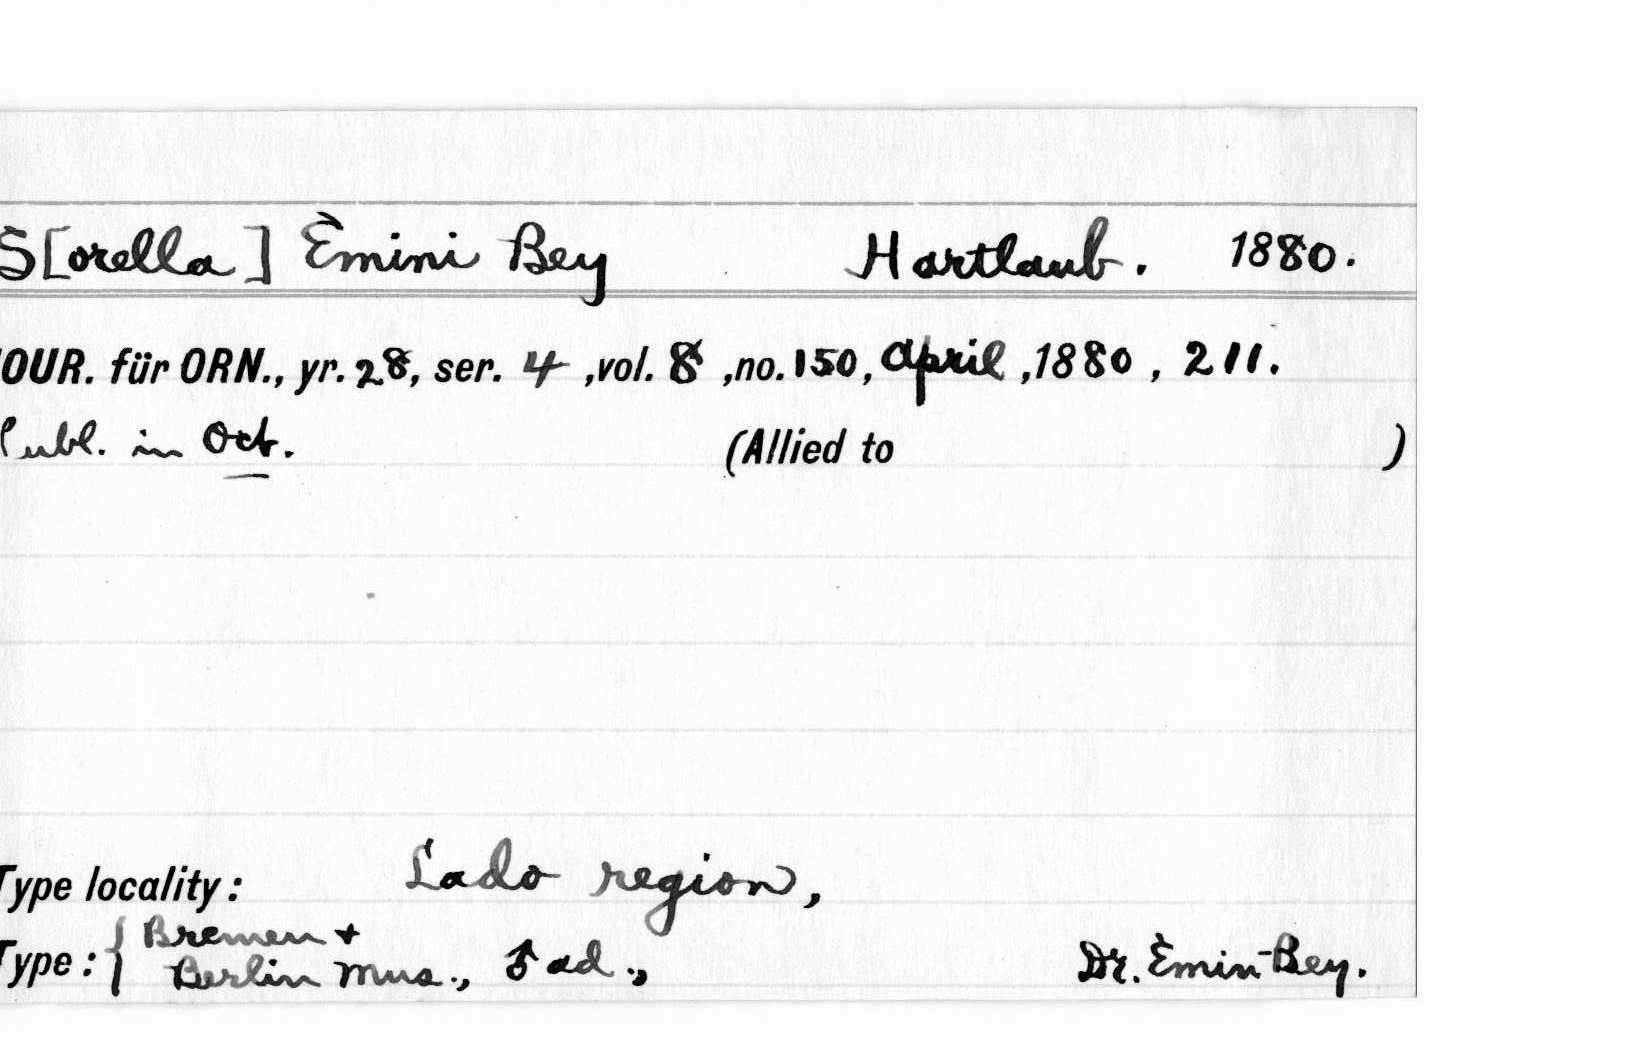 S[orella] Emini Bey Hartlaub. 1880.
JOUR. für ORN., yr. 28, ser. 4, vol. 8, no. 150, April, 1880, 211.
Publ. in Oct. (Allied to )
Type locality: Lado region,
Type: { Bremen +
Berlin Mus., ♂ ad., Dr. Emin-Bey.